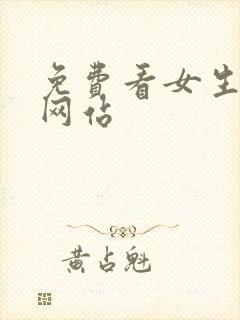 免費看女生
网站
黄占魁